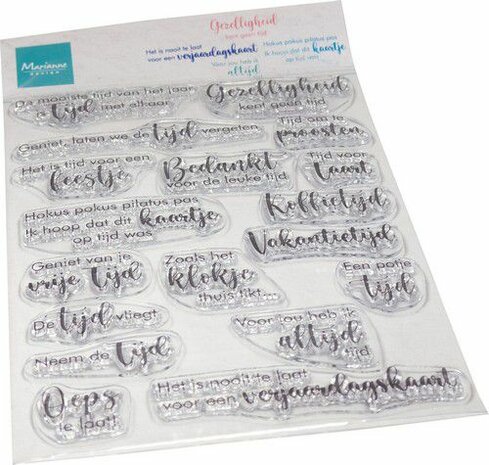 Marianne
design
Gezelligheid
kent geen tijd
Het is nooit te laat
voor een verjaardagskaart
Hokus pokus pilatus pas
Ik hoop dat dit kaartje
op tijd was
Voor jou heb ik
altijd
tijd
De mooiste tijd van het jaar
is tijd met elkaar
Gezelligheid
kent geen tijd
Geniet, laten we de tijd vergeten
Tijd om te
proosten
Het is tijd voor een
feestje
Bedankt
voor de leuke tijd
Tijd voor
taart
Hokus pokus pilatus pas
Ik hoop dat dit kaartje
op tijd was
Koffietijd
Vakantietijd
Geniet van je
vrije tijd
Zoals het
klokje
thuis tikt...
Een potje
tijd
De tijd vliegt
Voor jou heb ik
altijd
tijd
Neem de tijd
Oeps
te laat!
Het is nooit te laat
voor een verjaardagskaart